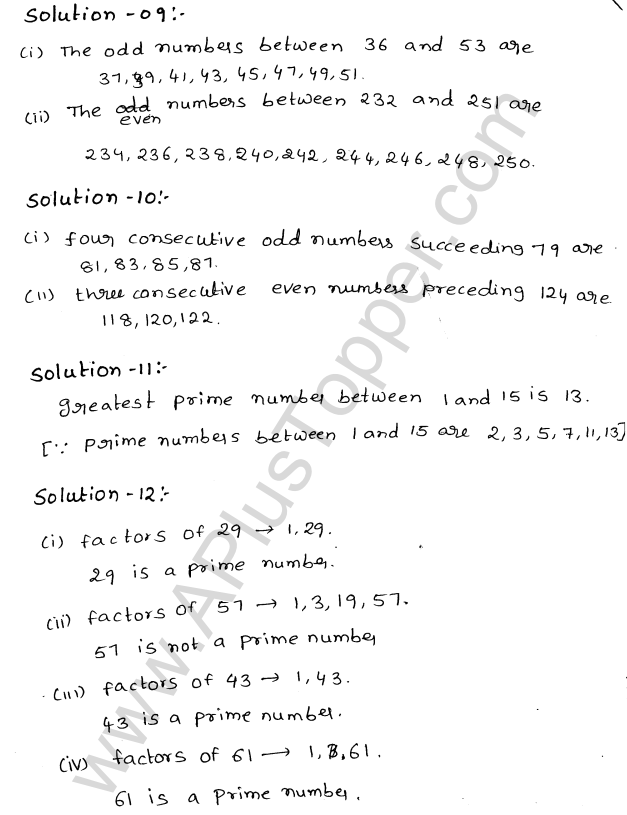 Solution -09:-
(i) The odd numbers between 36 and 53 are
37, 39, 41, 43, 45, 47, 49, 51.
(ii) The odd even numbers between 232 and 251 are
234, 236, 238, 240, 242, 244, 246, 248, 250.
Solution -10:-
(i) four consecutive odd numbers succeeding 79 are
81, 83, 85, 87.
(ii) three consecutive even numbers preceding 124 are
118, 120, 122.
Solution -11:-
greatest prime number between 1 and 15 is 13.
[∵ prime numbers between 1 and 15 are 2, 3, 5, 7, 11, 13]
Solution -12:-
(i) factors of 29 → 1, 29.
29 is a prime number.
(ii) factors of 57 → 1, 3, 19, 57.
57 is not a prime number
(iii) factors of 43 → 1, 43.
43 is a prime number.
(iv) factors of 61 → 1, 3, 61.
61 is a prime number.
www.APlusTopper.com